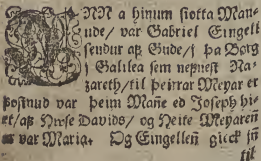 ONN a hinum siotta Man-
ude/ var Gabriel Eingell
sendur aff Gude/ j þa Borg
j Galilea sem nefnest Na-
zareth/ til þeirrar Meyar er
Fostnud var þeim Mañe ed Joseph hi-
et/ aff Hwse Davids/ og Heite Meyareñ
ar var Maria. Og Eingelleñ gieck jñ
til